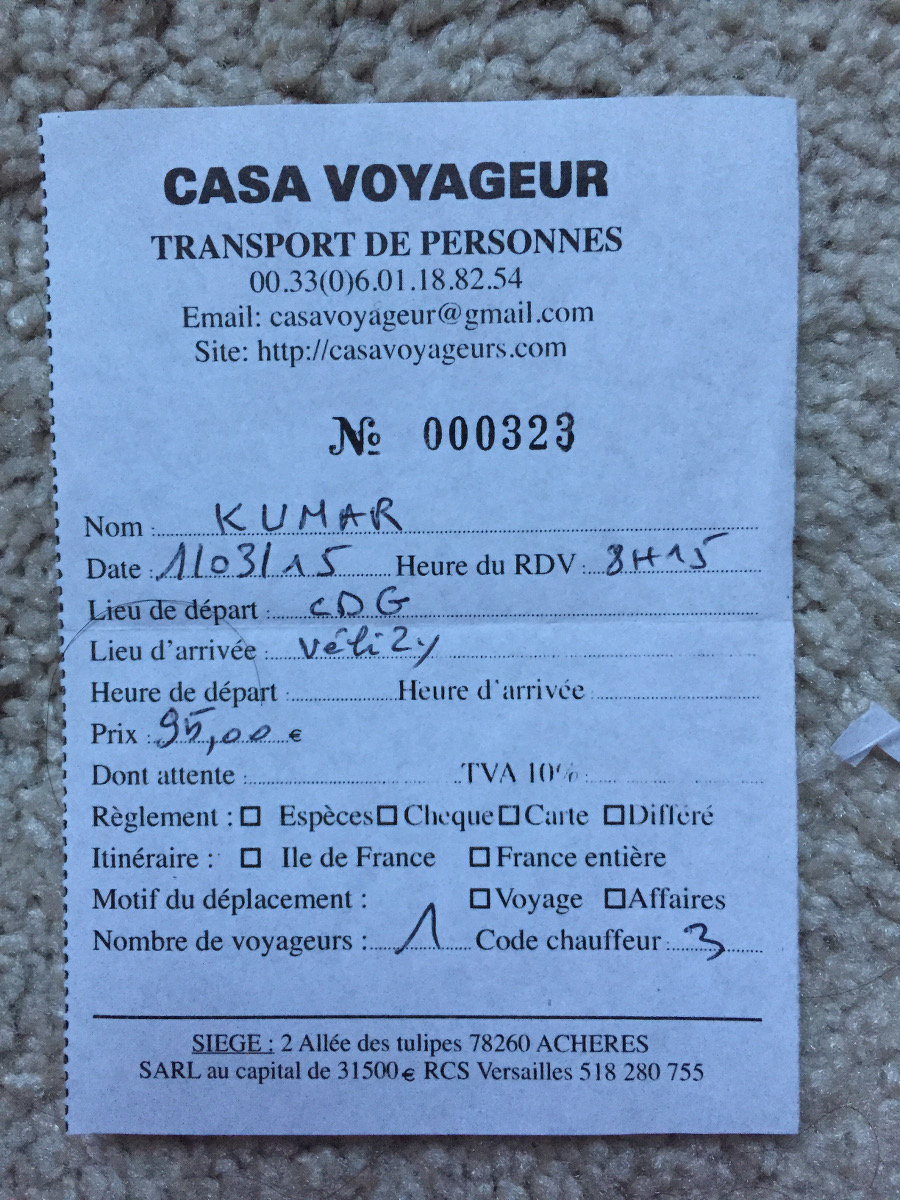 CASA VOYAGEUR
TRANSPORT DE PERSONNES
00.33(0)6.01.18.82.54
Email: casavoyageur@gmail.com
Site: http://casavoyageurs.com
No 000323
Nom : KUMAR
Date : 1/03/15 Heure du RDV : 8H15
Lieu de départ : CDG
Lieu d'arrivée : Vélizy
Heure de départ : Heure d'arrivée :
Prix : 95,00 €
Dont attente : TVA 10% :
Règlement : ☐ Espèces ☐ Cheque ☐ Carte ☐ Différé
Itinéraire : ☐ Ile de France ☐ France entière
Motif du déplacement : ☐ Voyage ☐ Affaires
Nombre de voyageurs : 1 Code chauffeur : 3
SIEGE : 2 Allée des tulipes 78260 ACHERES
SARL au capital de 31500€ RCS Versailles 518 280 755